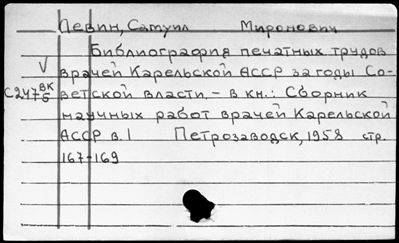 Левин, Самуил Миронович
Библиография печатных трудов
V врачей Карельской АССР за годы Со-
С247 ВК/5 ветской власти. - В кн.: Сборник
научных работ врачей Карельской
АССР в.1 Петрозаводск, 1958 стр.
167-169